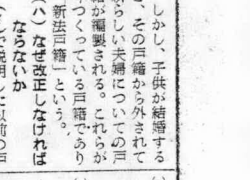 しかし、子供が結婚する
、その戸籍から外されて
新らしい夫婦についての戸
籍が編製される。これらが
つくっている戸籍であり
新法戸籍」という。
(八) なぜ改正しなければ
ならないか